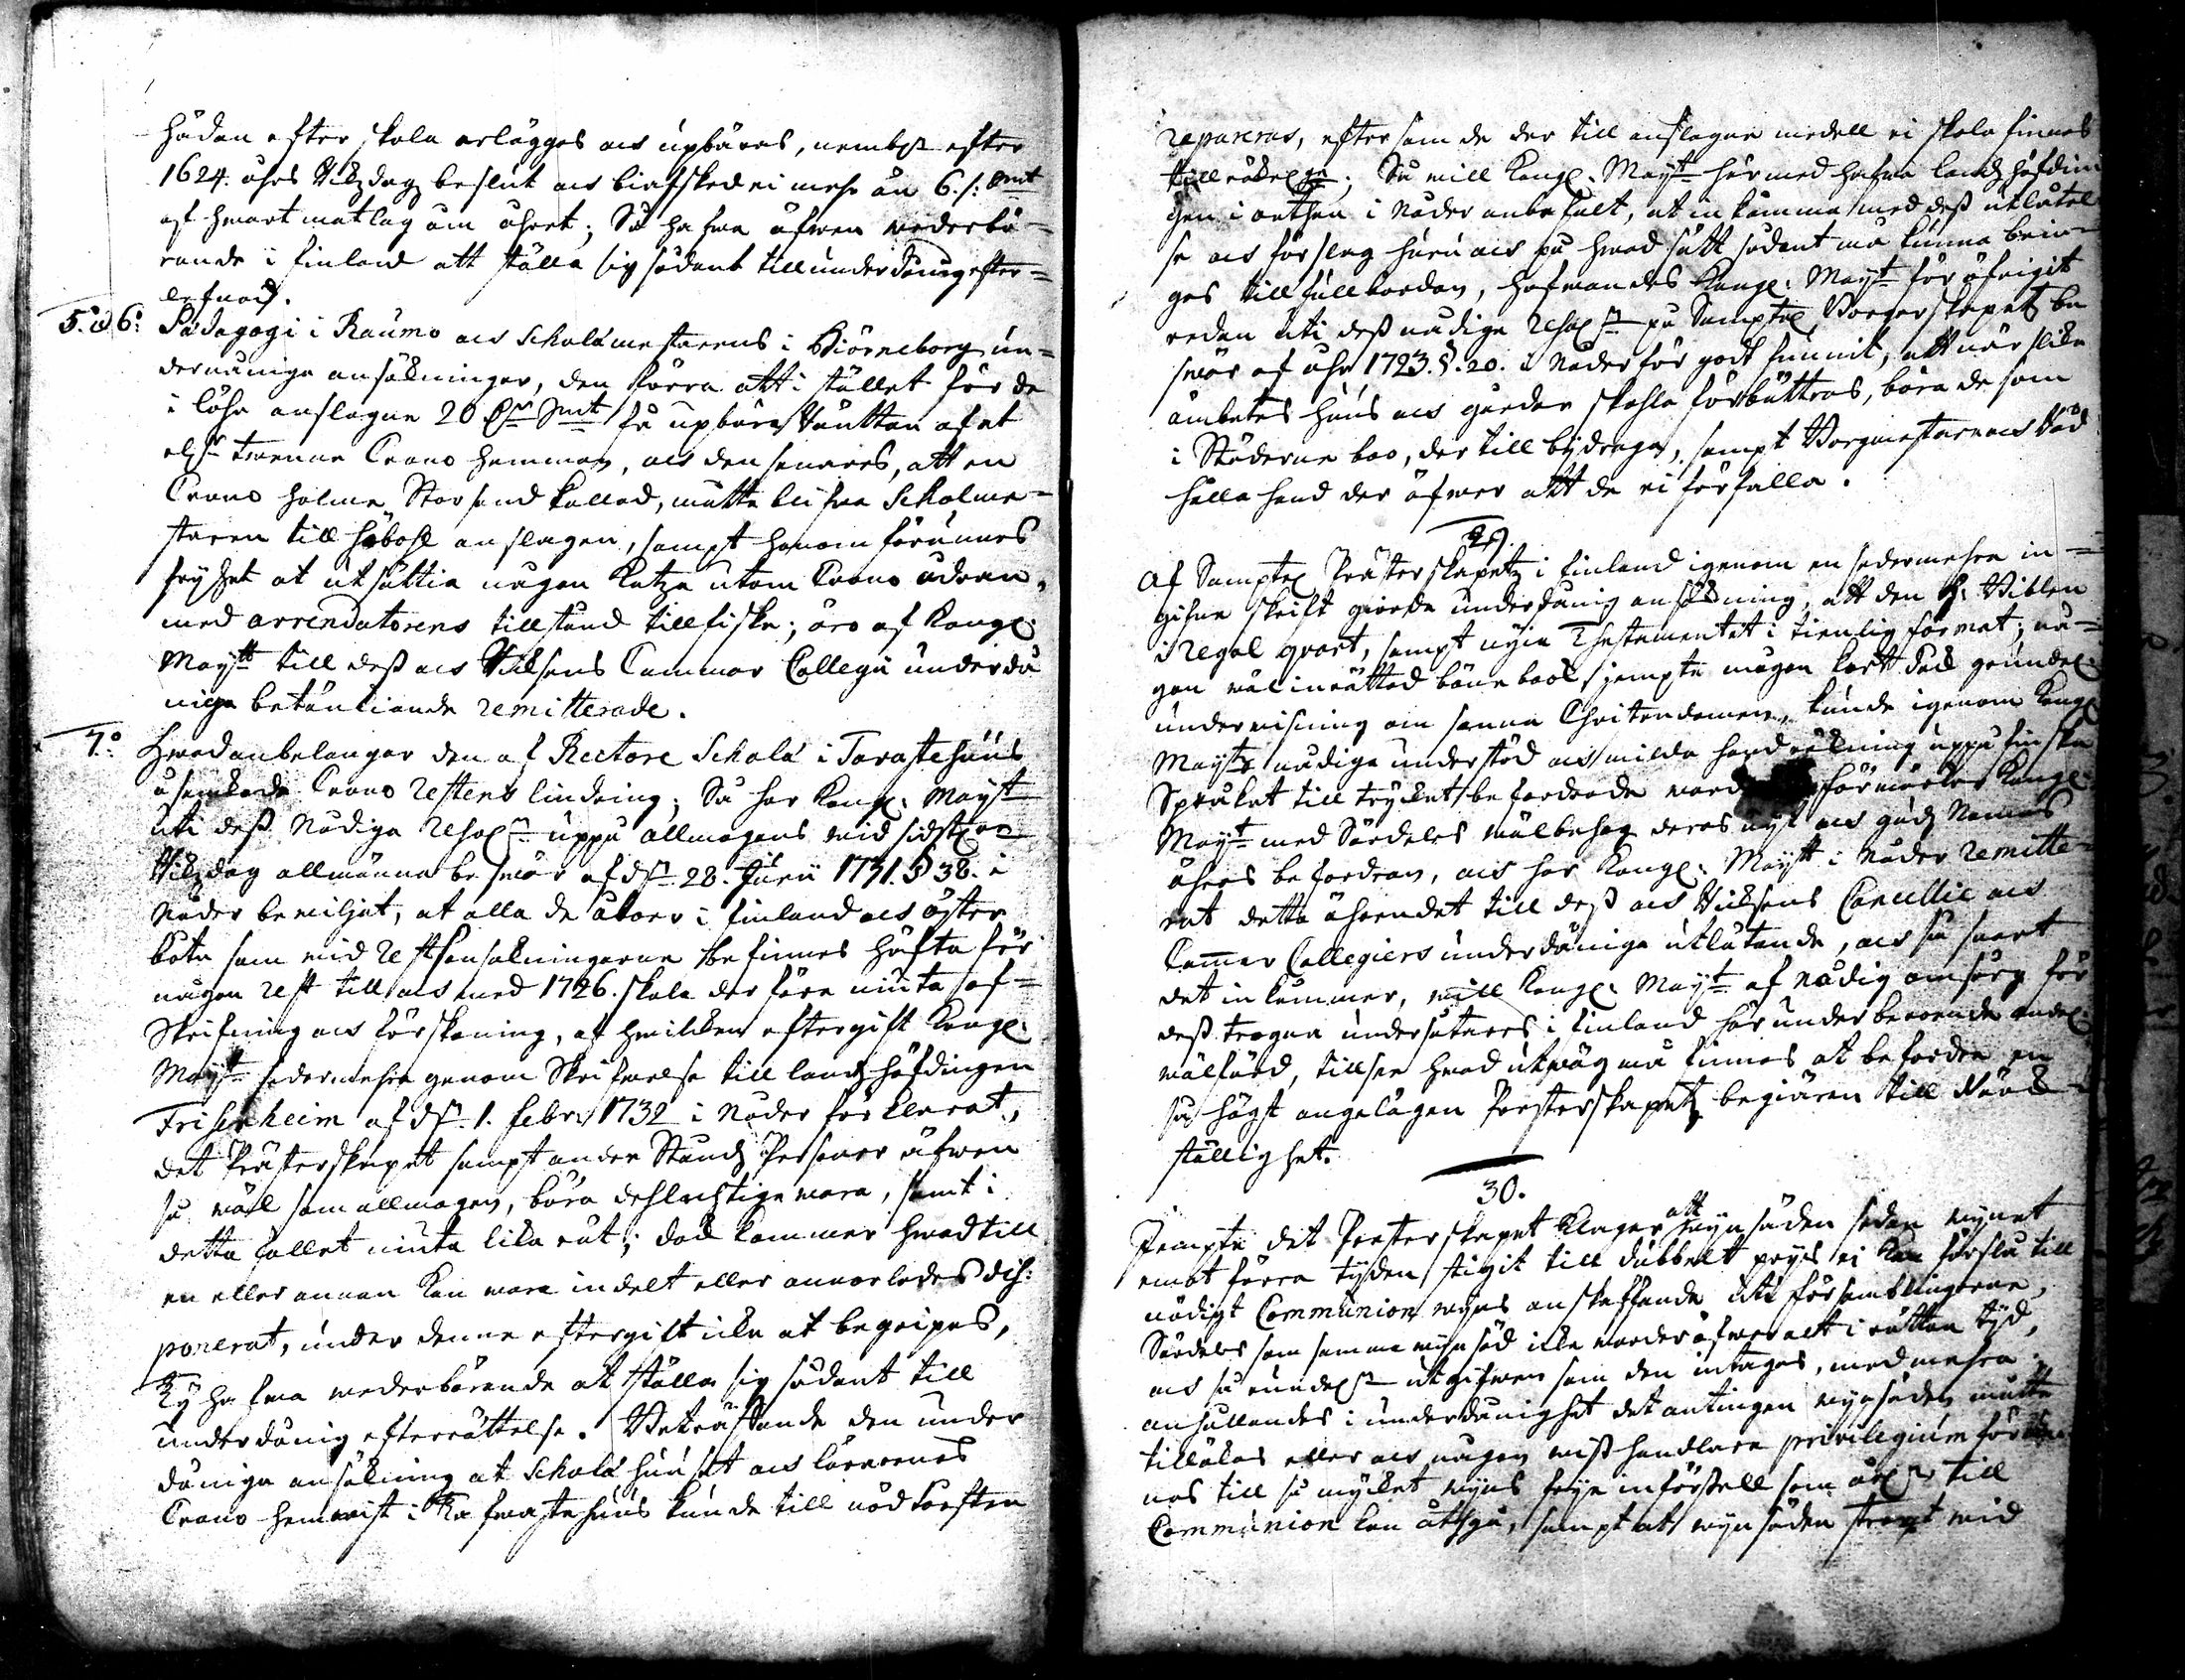 hädan efter skola erläggas och upbäras, nembl:n efter
1624. åhrs Rikzdag beslut och biafsked ei mehr än 6. s: Smt
af hwart matlag om åhret; Så hafwa äfwen wederbö=
rande i Finland att ställa sig sådant till underdånig efter=
lefnad.
5:o et 6:o Pædagogi i Raumo och Scholæmestarens i Biörneborg un=
derdånige ansökningar, den förra att i stället för de
i löhn anslagne 20 d:r Smt få upbära Räntan af et
ell:r twenne Crono hemman, och den senares, att en
Crono holme Storsand kallad, måtte blifwa Scholme=
staren till höbohl anslagen, sampt honom förunnes
fryhet at utsättia någon Katza utom Crono ådran,
med arrendatorens tillstånd till fiske; äro af Kongl:
Maytt till dess och Riksens Cammar Collegii underdå
nige betänkiande remitterade.
7:o Hwad anbelangar den af Rectore Scholæ i Tavastehuus
åsundade Crono Restens lindring; Så har Kongl: Mayst
uti dess Nådige Resol:n uppå allmogens wid sidst:e
Rikzdag allmänna beswär af d:n 28. Junii 1731. § 38. i
Nåder bewiljat, at alla de åboer i Finland och Öster
botn som wid Rest Ransakningarne befinnes häfta för
någon Rest till och med 1726. skola der före niuta af=
Skrifning och förskoning, af hwilken eftergift Kongl:
Mayst sedermehra genom Skrifwelse till landshöfdingen
Frisenheim af d:n 1. Febr: 1732 i Nåder förklarat,
det Prästerskapet sampt andra Stånds Personer äfwen
så wäl som allmogen, böra dehlachtige wara, samt i
detta fallet niuta lika rät; dock kommer hwad till
en eller annan kan wara indelt eller annorledes dis:
ponerat, under denne eftergift icke at begripas,
Ty hafwa wederbörande at ställa sig sådant till
underdånig efterrättelse. Beträffande den under
dånige ansökning at Scholæ huuset och lärarenes
Crono hemwist i Tafwastehuus kunde till nödtorften
repareras, eftersom de der till anslagne medell ei skola finnas
tillräckelige; Så will Kongl. Mayst här med hafwa landshöfdin
gen i orthen i Nåder anbefalt, at inkomma med dess utlåtel
se och förslag huru och på hwad sätt sådant må kunna brin=
gas till fullbordan, hafwandes Kongl: Mayst för öfrigit
redan uti dess nådige Resol:n på Samptel: Borgerskapets be
swär af åhr 1723. §. 20. i Nåder för godt funnit, att när slika
ämbetes huus och gårdar skohla förbättras, böra de som
i Städerne boo, der till bydraga, sampt Borgmestare och Råd
hålla hand der öfwer att de ei förfalla.
29.
Af Samptel: Prästerskapetz i Finland igenom en sedermehra in=
gifne skrift giorde underdånig ansökning, att den H: Biblen
i Regal qvart, sampt nyia Thestamentet i tienlig format; nå=
gon wälinrättad böne book, jempte någon kort dock grundel:
underwisning om sanna Christendomen, kunde igenom Kongl
Maytz nådige understöd och milda handräckning uppå finska
Språket till tryckets befordrade warda förmärker Kongl:
Mayst med Särdeles wälbehag deras nyt och Guds Namns
ähras befordran, och har Kongl: Maytt i Nåder remitte=
rat detta ährendet till dess och Riksens Cancellie och
Cammar Collegiers underdånige utlåtande, och så snart
det inkommer, will Kongl: Mayst af nådig omsorg för
dess trogna undersåtares i Finland här under beroende andel:
wälfärd, tillsee hwad utwäg må finnas at befordra en
så högst angelägen Presterskapetz begiären till Wärck=
stællighet.
30.
Jempte det Presterskapet klagar att wynsäden sedan wynet
emot förra tyden stigit till dubbelt prys ei kan förslå till
nödigt Communion wyns anskaffande uti församblingarne,
Särdeles som samma wynsäd icke warder öfweralt i rättan tyd,
och så rundel:n utgifwen som den intages, med mehra;
anhållandes i underdånighet det antingen wynsäden måtte
tillökas eller och någon wiss handlare privilegium förunnas
nas till så myckit wyns frye införsell som årl:n till
Communion kan åthgå, sampt att wynsäden strax wid